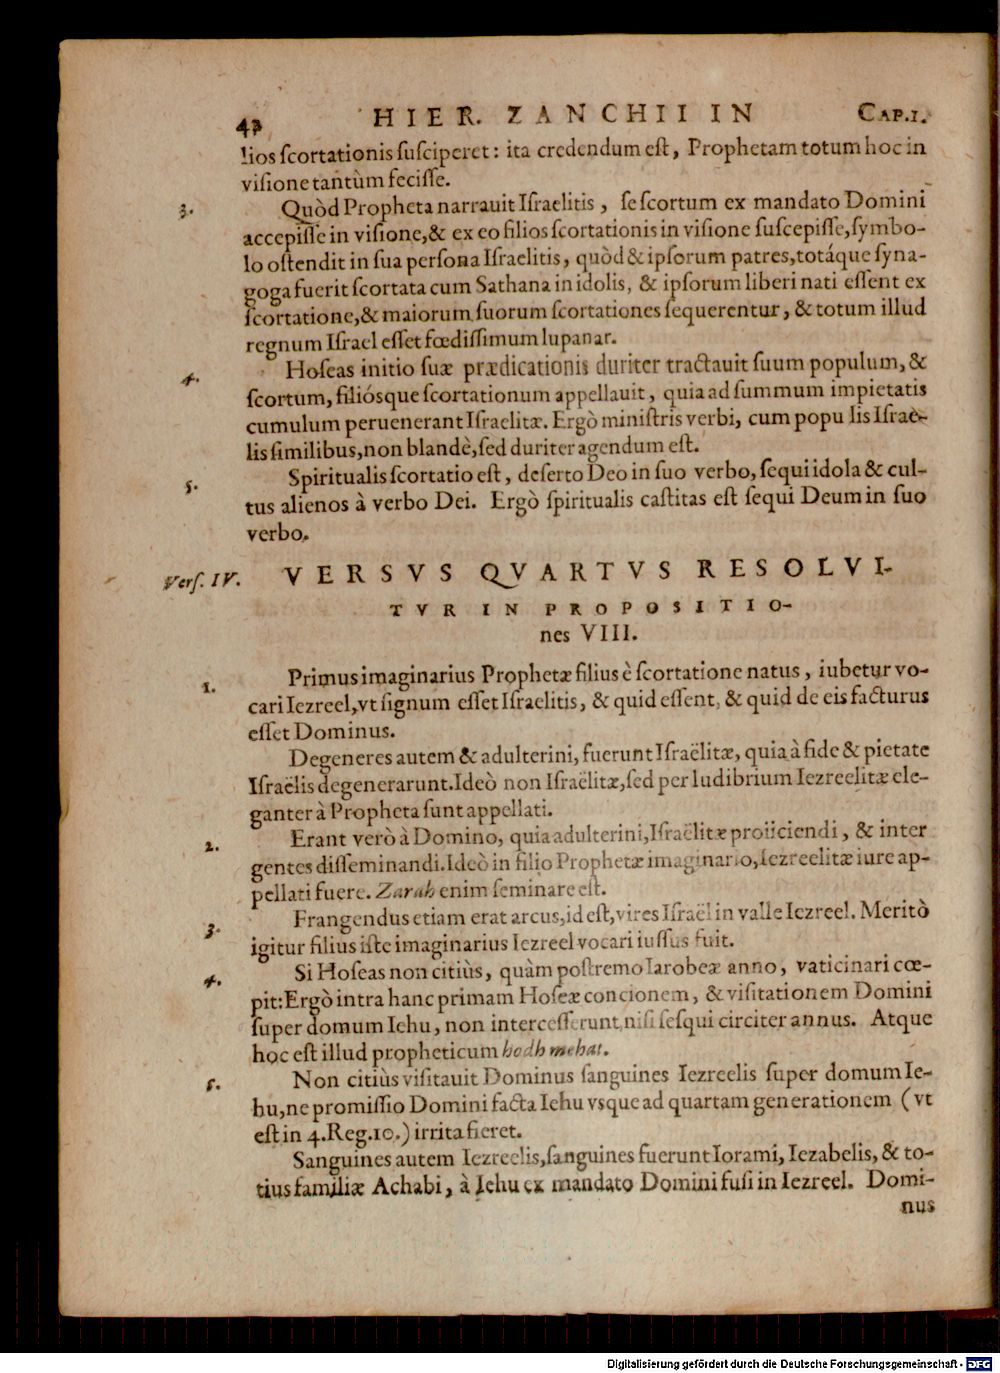 42 HIER. ZANCHII IN CAP.I.
lios ſcortationis ſuſciperet: ita credendum eſt, Prophetam totum hoc in
viſione tantùm feciſſe.
3. Quòd Propheta narrauit Iſraelitis, ſe ſcortum ex mandato Domini
accepiſſe in viſione,& ex eo filios ſcortationis in viſione ſuſcepiſſe,ſymbo-
lo oſtendit in ſua perſona Iſraelitis, quòd & ipſorum patres,totáque ſyna-
goga fuerit ſcortata cum Sathana in idolis, & ipſorum liberi nati eſſent ex
ſcortatione,& maiorum ſuorum ſcortationes ſequerentur, & totum illud
regnum Iſrael eſſet fœdiſſimum lupanar.
4. Hoſeas initio ſuæ prædicationis duriter tractauit ſuum populum, &
ſcortum, filiósque ſcortationum appellauit, quia ad ſummum impietatis
cumulum peruenerant Iſraelitæ. Ergò miniſtris verbi, cum popu lis Iſrae-
lis ſimilibus,non blandè,ſed duriter agendum eſt.
5. Spiritualis ſcortatio eſt, deſerto Deo in ſuo verbo, ſequi idola & cul-
tus alienos à verbo Dei. Ergò ſpiritualis caſtitas eſt ſequi Deum in ſuo
verbo.
Verſ. IV. VERSVS QVARTVS RESOLVI-
TVR IN PROPOSITIO-
nes VIII.
1. Primus imaginarius Prophetæ filius è ſcortatione natus, iubetur vo-
cari Iezreel,vt ſignum eſſet Iſraelitis, & quid eſſent, & quid de eis facturus
eſſet Dominus.
Degeneres autem & adulterini, fuerunt Iſraëlitæ, quia à fide & pietate
Iſraëlis degenerarunt.Ideò non Iſraëlitæ,ſed per ludibrium Iezreelitæ ele-
ganter à Propheta ſunt appellati.
2. Erant verò à Domino, quia adulterini,Iſraëlitæ proiiciendi, & inter
gentes diſſeminandi.Ideò in filio Prophetæ imaginario,Iezreelitæ iure ap-
pellati fuere. Zarah enim ſeminare eſt.
3. Frangendus etiam erat arcus,id eſt,vires Iſraël in valle Iezreel. Meritò
igitur filius iſte imaginarius Iezreel vocari iuſſus fuit.
4. Si Hoſeas non citiùs, quàm poſtremo Iarobeæ anno, vaticinari cœ-
pit:Ergò intra hanc primam Hoſeæ concionem, & viſitationem Domini
ſuper domum Iehu, non interceſſerunt,niſi ſeſqui circiter annus. Atque
hoc eſt illud propheticum hodh mehat.
5. Non citiùs viſitauit Dominus ſanguines Iezreelis ſuper domum Ie-
hu,ne promiſſio Domini facta Iehu vsque ad quartam generationem (vt
eſt in 4.Reg.10.) irrita fieret.
Sanguines autem Iezreelis,ſanguines fuerunt Iorami, Iezabelis, & to-
tius familiæ Achabi, à Iehu ex mandato Domini fuſi in Iezreel. Domi-
nus
Digitalisierung gefördert durch die Deutsche Forschungsgemeinschaft - DFG